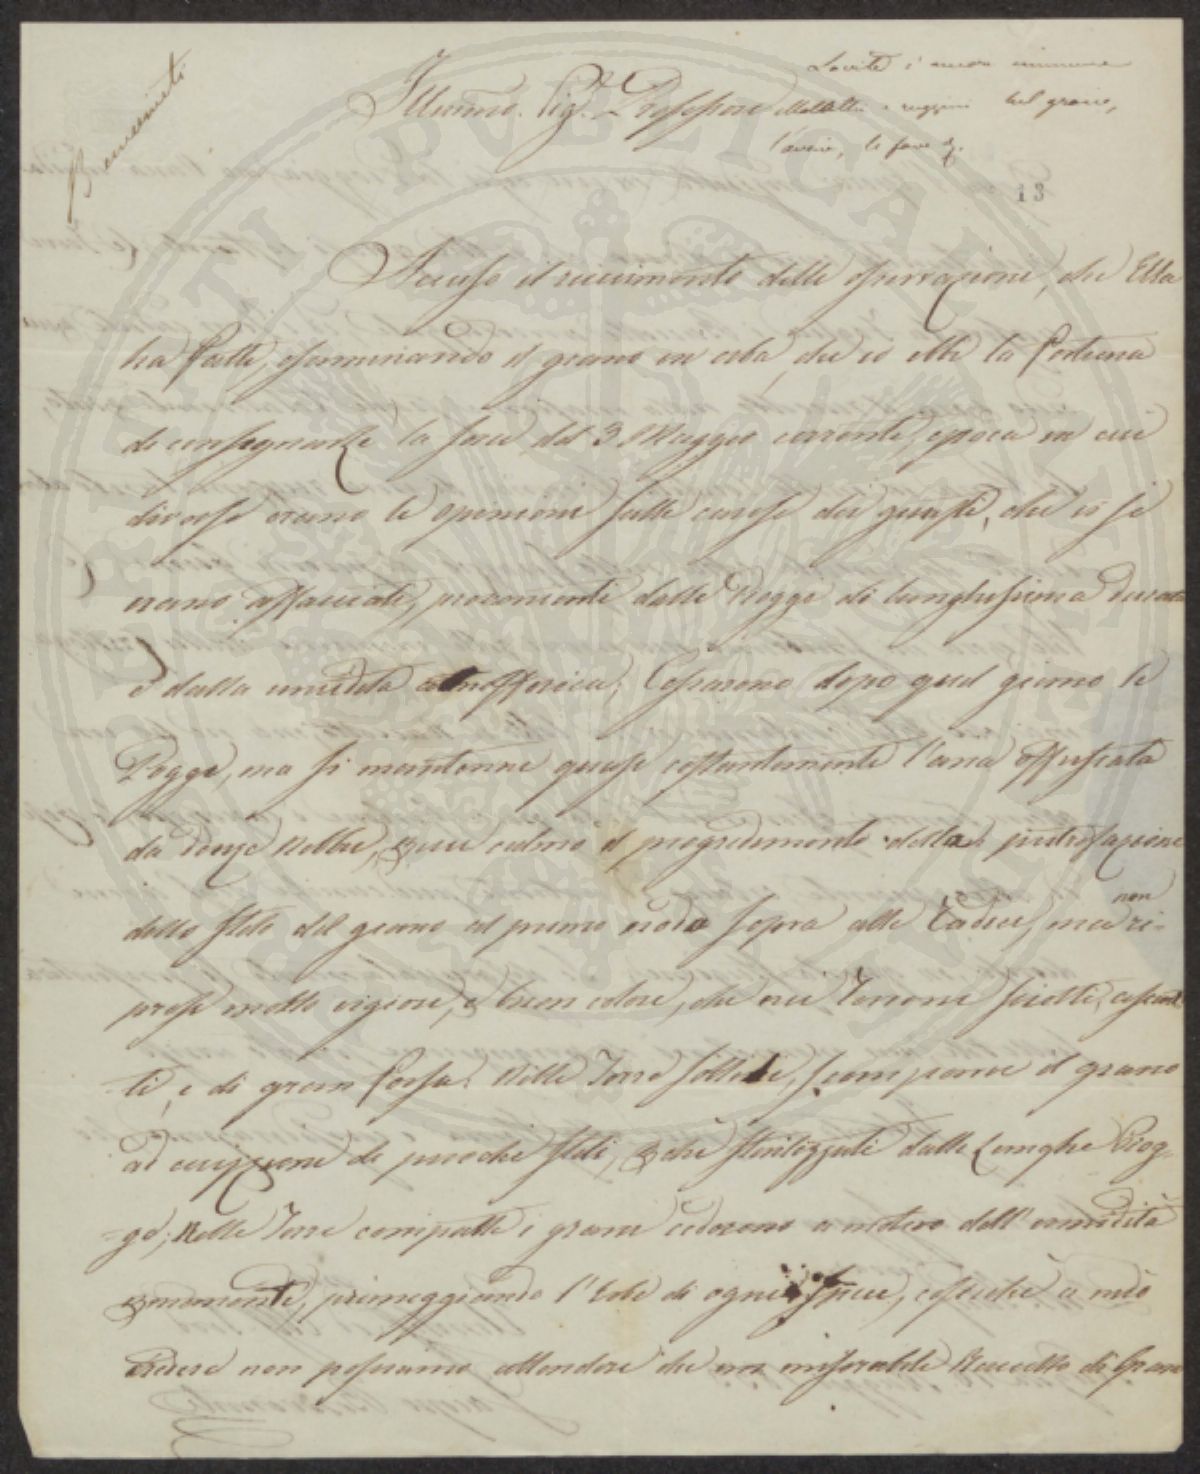 Benvenuti
La vite è ancora immune
Malattia e ruggini nel grano,
l'avena, le fave &.
Illummo. Sig.r Professore
13
Accuso il ricevimento delle osservazioni, che Ella
ha fatte, esaminando il grano in erba, che io ebbi la fortuna
di consegnarle la sera del 3 Maggio corrente, epoca in cui
diverse erano le opinioni sulle cause dei guasti, che si
erano affacciati, provenienti dalle Piogge di lunghissima durata
e dalla umidità atmosferica. Cessarono dopo quel giorno le
Piogge, ma si mantenne quasi costantemente l'aria offuscata
da dense Nebbie, cui calmò il progredimento della putrefazione
dello stelo del grano al primo nodo sopra alle Radici, ma non ri-
prese molto vigore, e buon colore, che nei Terreni sciolti, asciut
ti, e di gran forza. Nelle Terre sottili, scomparve il grano
ad eccezione di pochi steli, che sterilizzati dalle lunghe Piog-
ge; Nelle Terre compatte i grani cederono a motivo dell'umidità
permanente, primeggiando l'Erbe di ogni specie, cosicché a mio
credere non possiamo attendere che un miserabile Raccolto di Grano